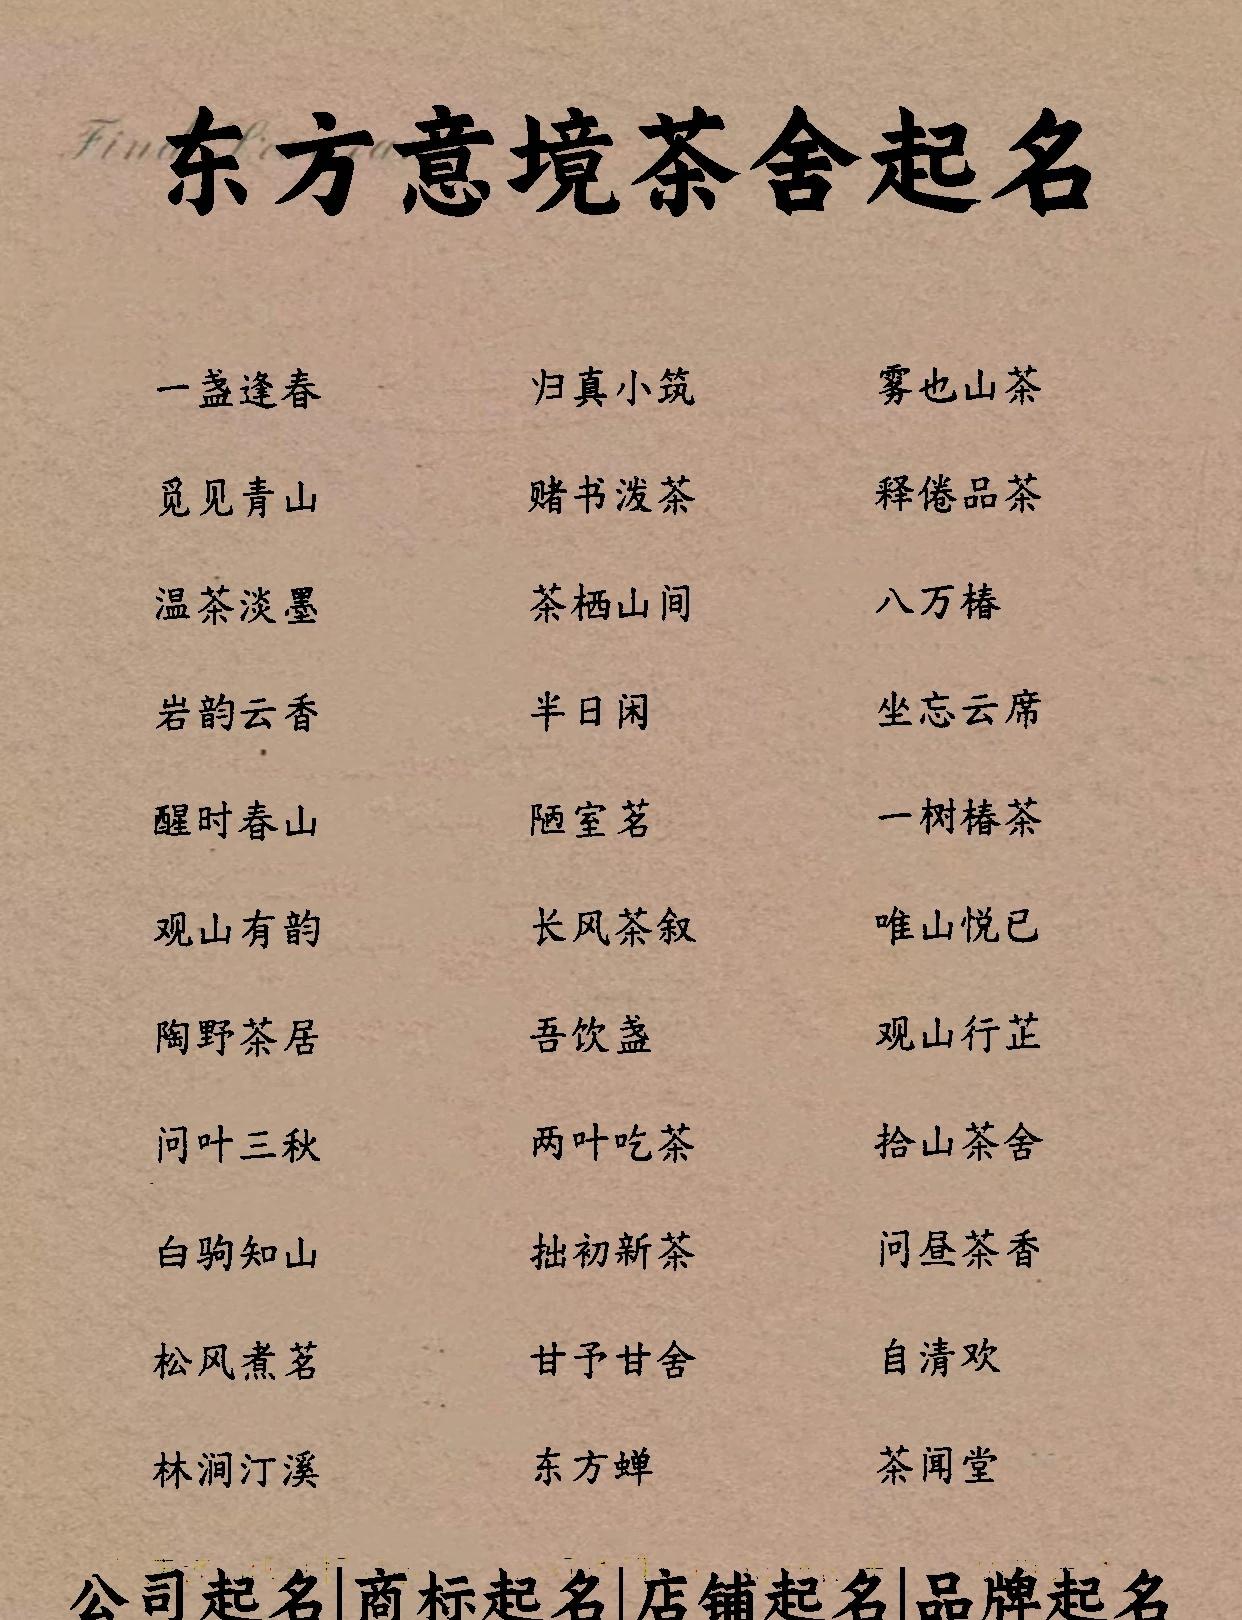 东方意境茶舍起名
一盏逢春 归真小筑 雾也山茶
觅见青山 赌书泼茶 释倦品茶
温茶淡墨 茶栖山间 八万椿
岩韵云香 半日闲 坐忘云席
醒时春山 陋室茗 一树椿茶
观山有韵 长风茶叙 唯山悦已
陶野茶居 吾饮盏 观山行芷
问叶三秋 两叶吃茶 拾山茶舍
白驹知山 拙初新茶 问昼茶香
松风煮茗 甘予甘舍 自清欢
林涧汀溪 东方蝉 茶闻堂
公司起名|商标起名|店铺起名|品牌起名